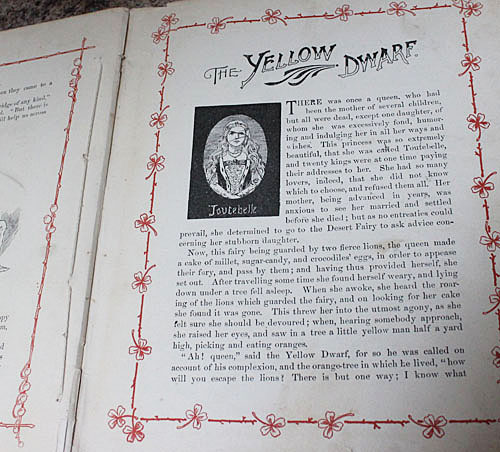 hen they came to a
ridge of any kind,"
d. "But there is
ill help us across
THE YELLOW DWARF.
Toutebelle
THERE was once a queen, who had
been the mother of several children,
but all were dead, except one daughter, of
whom she was excessively fond, humor-
ing and indulging her in all her ways and
wishes. This princess was so extremely
beautiful, that she was called Toutebelle,
and twenty kings were at one time paying
their addresses to her. She had so many
lovers, indeed, that she did not know
which to choose, and refused them all. Her
mother, being advanced in years, was
anxious to see her married and settled
before she died; but as no entreaties could
prevail, she determined to go to the Desert Fairy to ask advice con-
cerning her stubborn daughter.
Now, this fairy being guarded by two fierce lions, the queen made
a cake of millet, sugar-candy, and crocodiles' eggs, in order to appease
their fury, and pass by them; and having thus provided herself, she
set out. After travelling some time she found herself weary, and lying
down under a tree fell asleep. When she awoke, she heard the roar-
ing of the lions which guarded the fairy, and on looking for her cake
she found it was gone. This threw her into the utmost agony, as she
felt sure she should be devoured; when, hearing somebody approach,
she raised her eyes, and saw in a tree a little yellow man half a yard
high, picking and eating oranges.
"Ah! queen," said the Yellow Dwarf, for so he was called on
account of his complexion, and the orange-tree in which he lived, "how
will you escape the lions! There is but one way; I know what